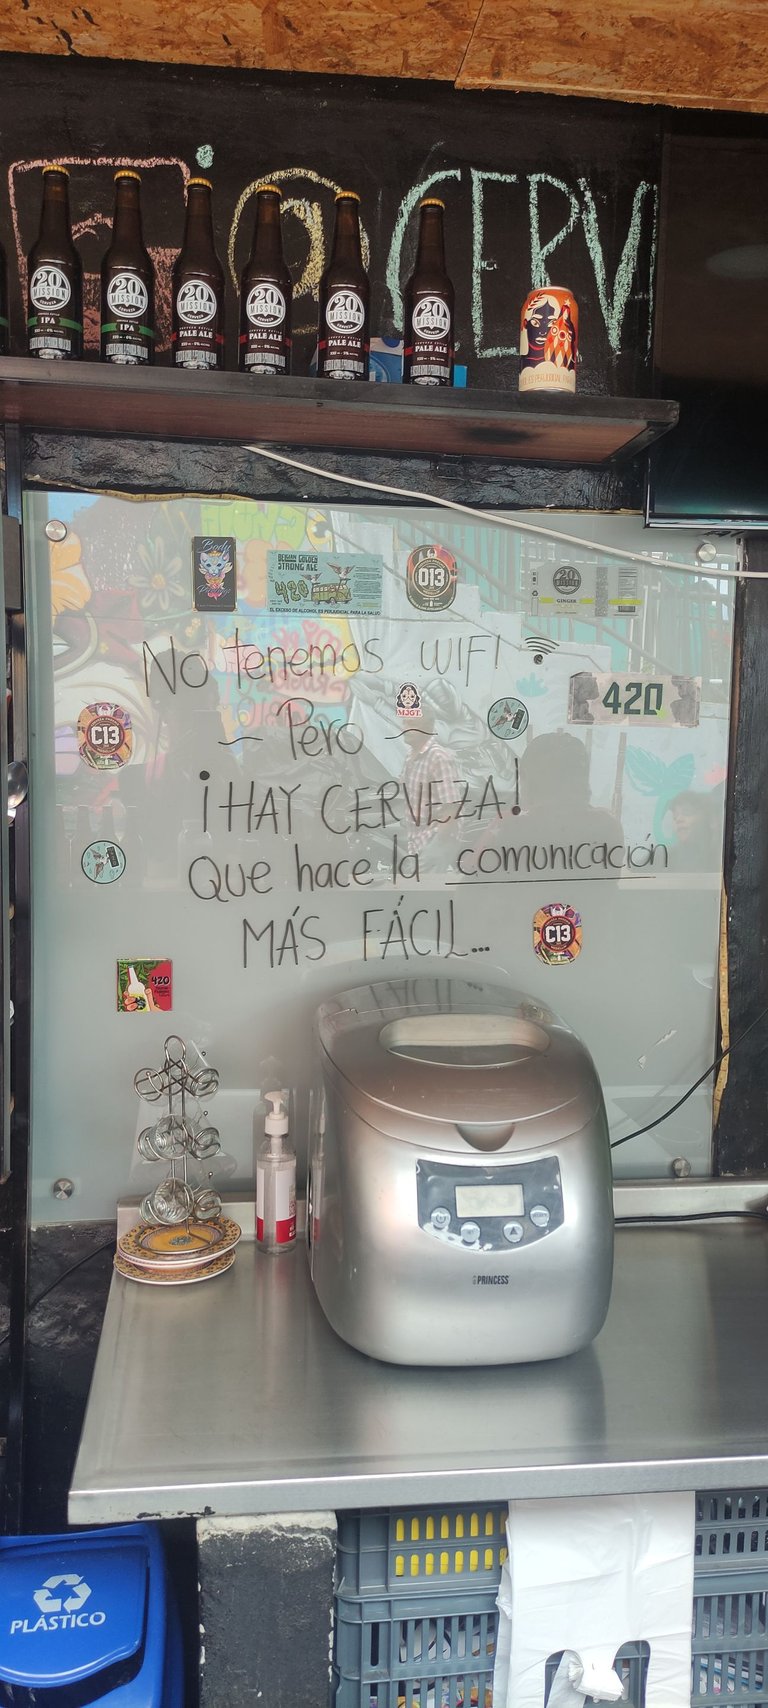 CERV
20 MISSION IPA
20 MISSION IPA
20 MISSION PALE ALE
20 MISSION PALE ALE
20 MISSION PALE ALE
20 MISSION PALE ALE
Body
BELGIAN GOLDEN
STRONG ALE
420
EL EXCESO DE ALCOHOL ES PERJUDICIAL PARA LA SALUD
013
20
GINGER
No tenemos WIFI
MJGT.
420
C13
~ Pero ~
¡HAY CERVEZA!
Que hace la comunicación
MÁS FÁCIL...
C13
420
PRINCESS
PLÁSTICO